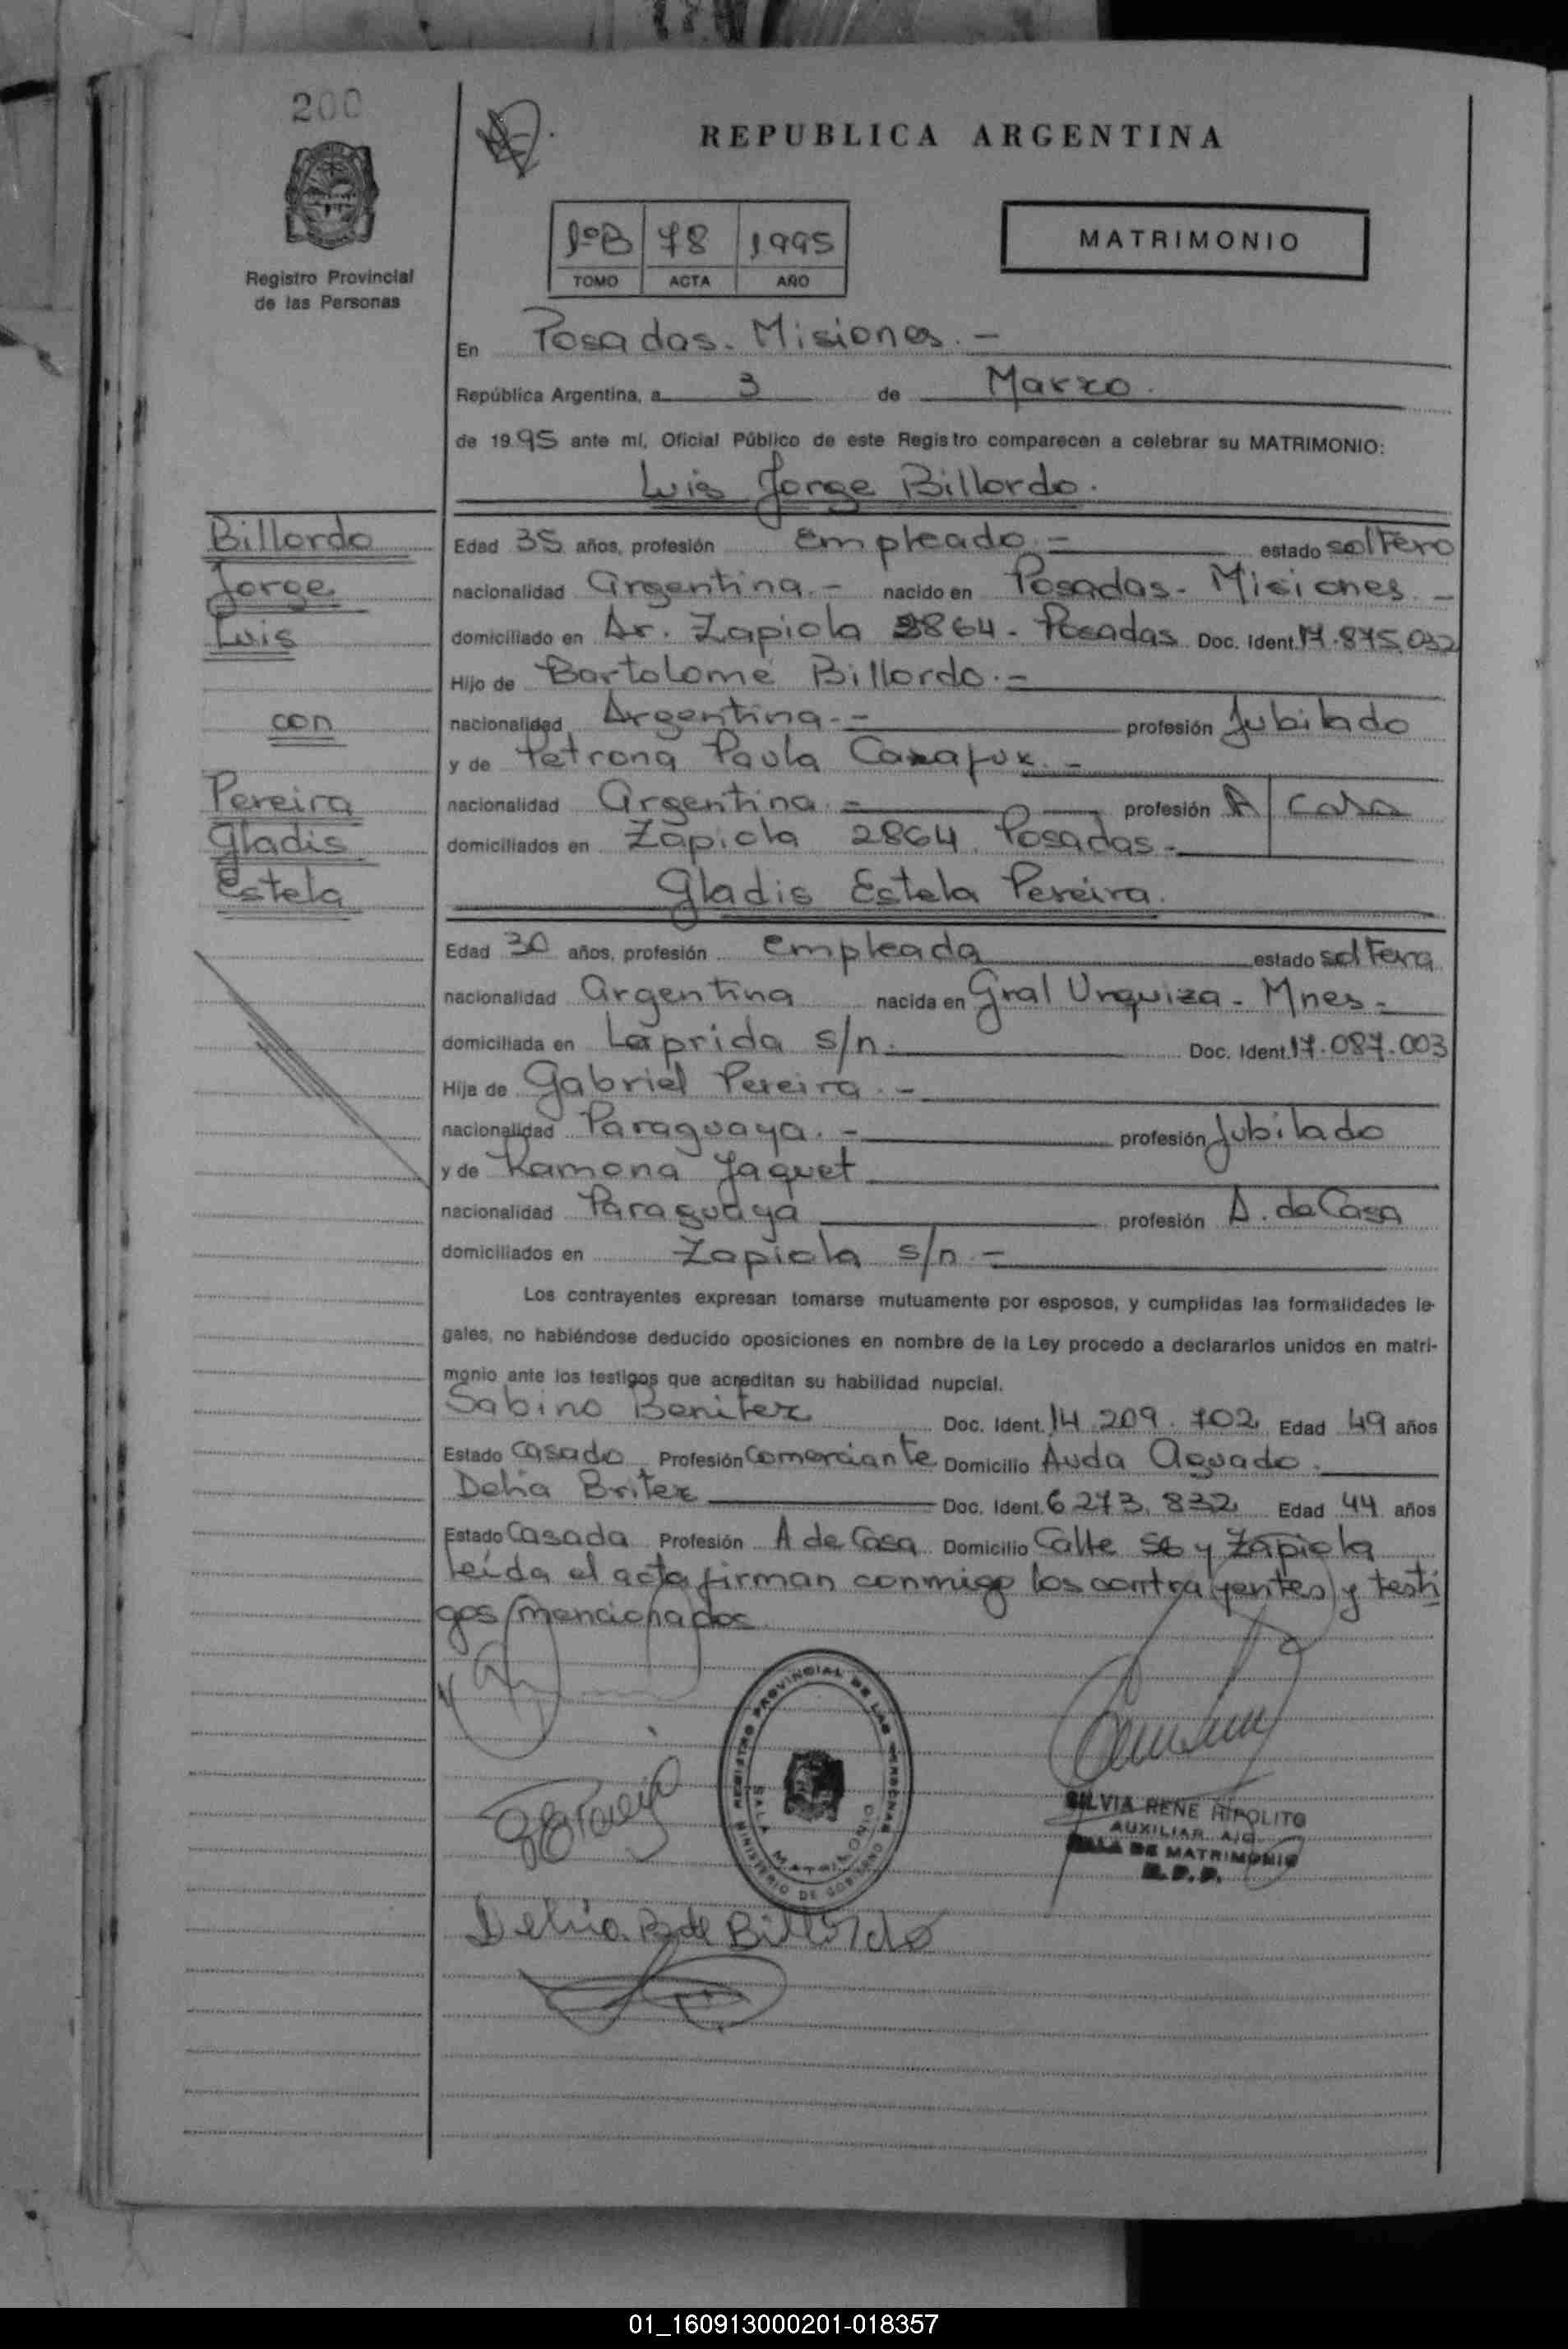 200
REPUBLICA ARGENTINA
1ºB 78 1995
TOMO ACTA AÑO
MATRIMONIO
Registro Provincial
de las Personas
En Posadas. Misiones. -
República Argentina, a 3 de Marzo.
de 1995 ante mí, Oficial Público de este Registro comparecen a celebrar su MATRIMONIO:
Luis Jorge Billordo.
Billordo
Jorge
Luis
con
Pereira
Gladis
Estela
Edad 35 años, profesión empleado. - estado soltero
nacionalidad argentina. - nacido en Posadas - Misiones -
domiciliado en Av. Zapiola 2864 - Posadas Doc. Ident. 17.875.032
Hijo de Bartolomé Billordo. -
nacionalidad Argentina. - profesión Jubilado
y de Petrona Paula -
nacionalidad argentina. - profesión A casa
domiciliados en Zapiola 2864. Posadas -
Gladis Estela Pereira.
Edad 30 años, profesión empleada estado soltera
nacionalidad argentina nacida en Gral Urquiza - Mnes -
domiciliada en Laprida s/n. Doc. Ident. 17.087.003
Hija de Gabriel Pereira. -
nacionalidad Paraguaya. - profesión Jubilado
y de Ramona Jaquet
nacionalidad Paraguaya profesión A. de Casa
domiciliados en Zapiola s/n -
Los contrayentes expresan tomarse mutuamente por esposos, y cumplidas las formalidades le-
gales, no habiéndose deducido oposiciones en nombre de la Ley procedo a declararlos unidos en matri-
monio ante los testigos que acreditan su habilidad nupcial.
Sabino Benitez Doc. Ident. 14.209.702 Edad 49 años
Estado Casado Profesión Comerciante Domicilio Avda Aguado.
Delia Britez Doc. Ident. 6.273.832 Edad 44 años
Estado Casada Profesión A de Casa Domicilio Calle 56 y Zapiola
leída el acta firman conmigo los contrayentes y testi
gos mencionados
REGISTRO PROVINCIAL DE LAS PERSONAS
MINISTERIO DE GOBIERNO
SALA MATRIMONIO
SILVIA RENE HIPOLITO
AUXILIAR
SALA DE MATRIMONIO
R.P.P.
Delia B de Billordo
01_160913000201-018357